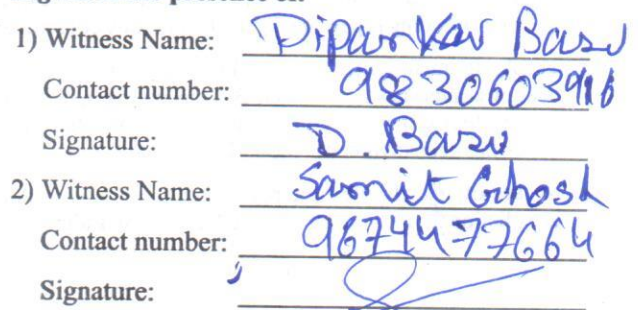 1) Witness Name: Dipankar Basu
Contact number: 9830603916
Signature: D. Basu
2) Witness Name: Samit Ghosh
Contact number: 9674477664
Signature: